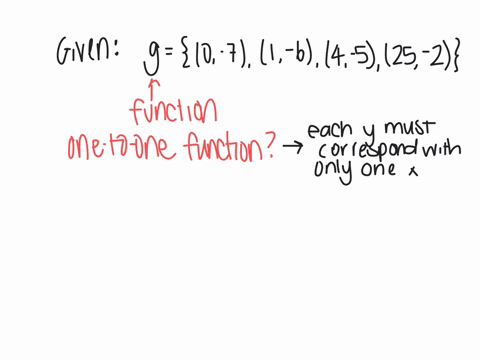 Given: g = {(0,-7), (1,-6), (4,-5), (25,-2)}
↑
function
one-to-one function? → each y must
correspond with
only one x